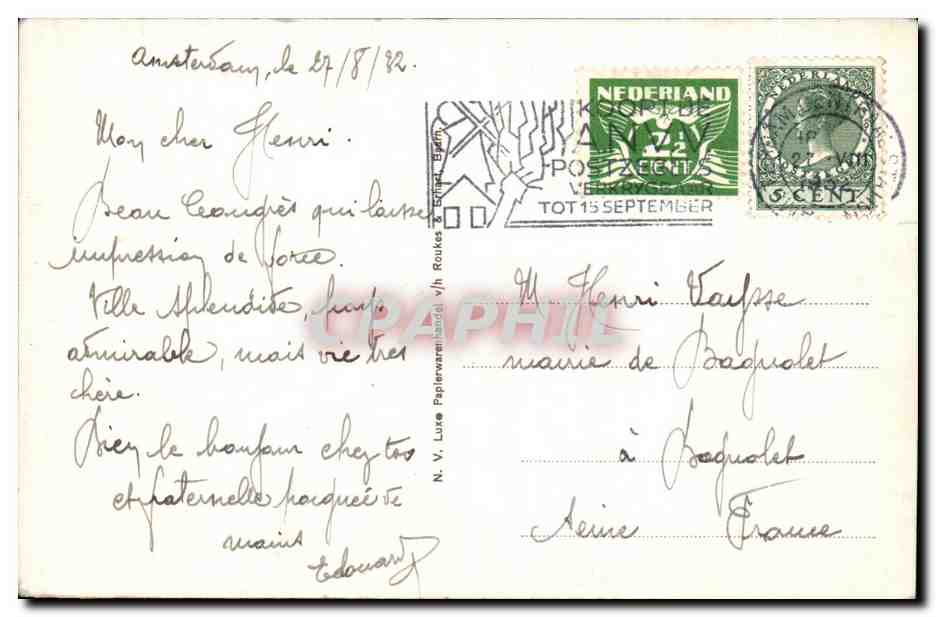 Amsterdam, le 27/8/32.
Mon cher Henri.
Beau Congrès qui laisse
impression de force.
Ville splendide, pays
admirable, mais vie très
chère.
Bien le bonjour chez toi
et fraternelle poignée de
mains
Edouard
N. V. Luxe Papierwarenhandel v/h Roukes & Erhart, Baarn.
KOOPT DE
ANVV
POSTZEGELS
VERKRYGBAAR
TOT 15 SEPTEMBER
NEDERLAND
CENT
NEDERLAND
5 CENT
M. Henri Vaysse
mairie de Bagnolet
à Bagnolet
Seine France
CPAPHIL